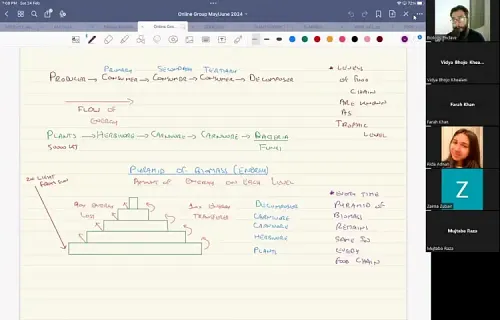 7:08 PM Sat 24 Feb
Online Group May/June 2024
PRIMARY SECONDARY TERTIARY
PRODUCER → CONSUMER → CONSUMER → CONSUMER → DECOMPOSER
FLOW OF
ENERGY
PLANTS → HERBIVORE → CARNIVORE → CARNIVORE → BACTERIA
5000 KJ
FUNGI
* LEVELS
OF FOOD
CHAIN
ARE KNOWN
AS
TROPHIC
LEVEL
PYRAMID OF BIOMASS (ENERGY)
AMOUNT OF ENERGY ON EACH LEVEL
FROM SUN
90% ENERGY
LOSS
10% ENERGY
TRANSFER
DECOMPOSER
CARNIVORE
CARNIVORE
HERBIVORE
PLANTS
* EVERY TIME
PYRAMID OF
BIOMASS
REMAINS
SAME IN
EVERY
FOOD CHAIN
Vidya Bhojo Khea...
Vidya Bhojo Khealani
Farah Khan
Farah Khan
Rida Adnan
Z
Zainia Zubair
Mujtaba Raza
Mujtaba Raza